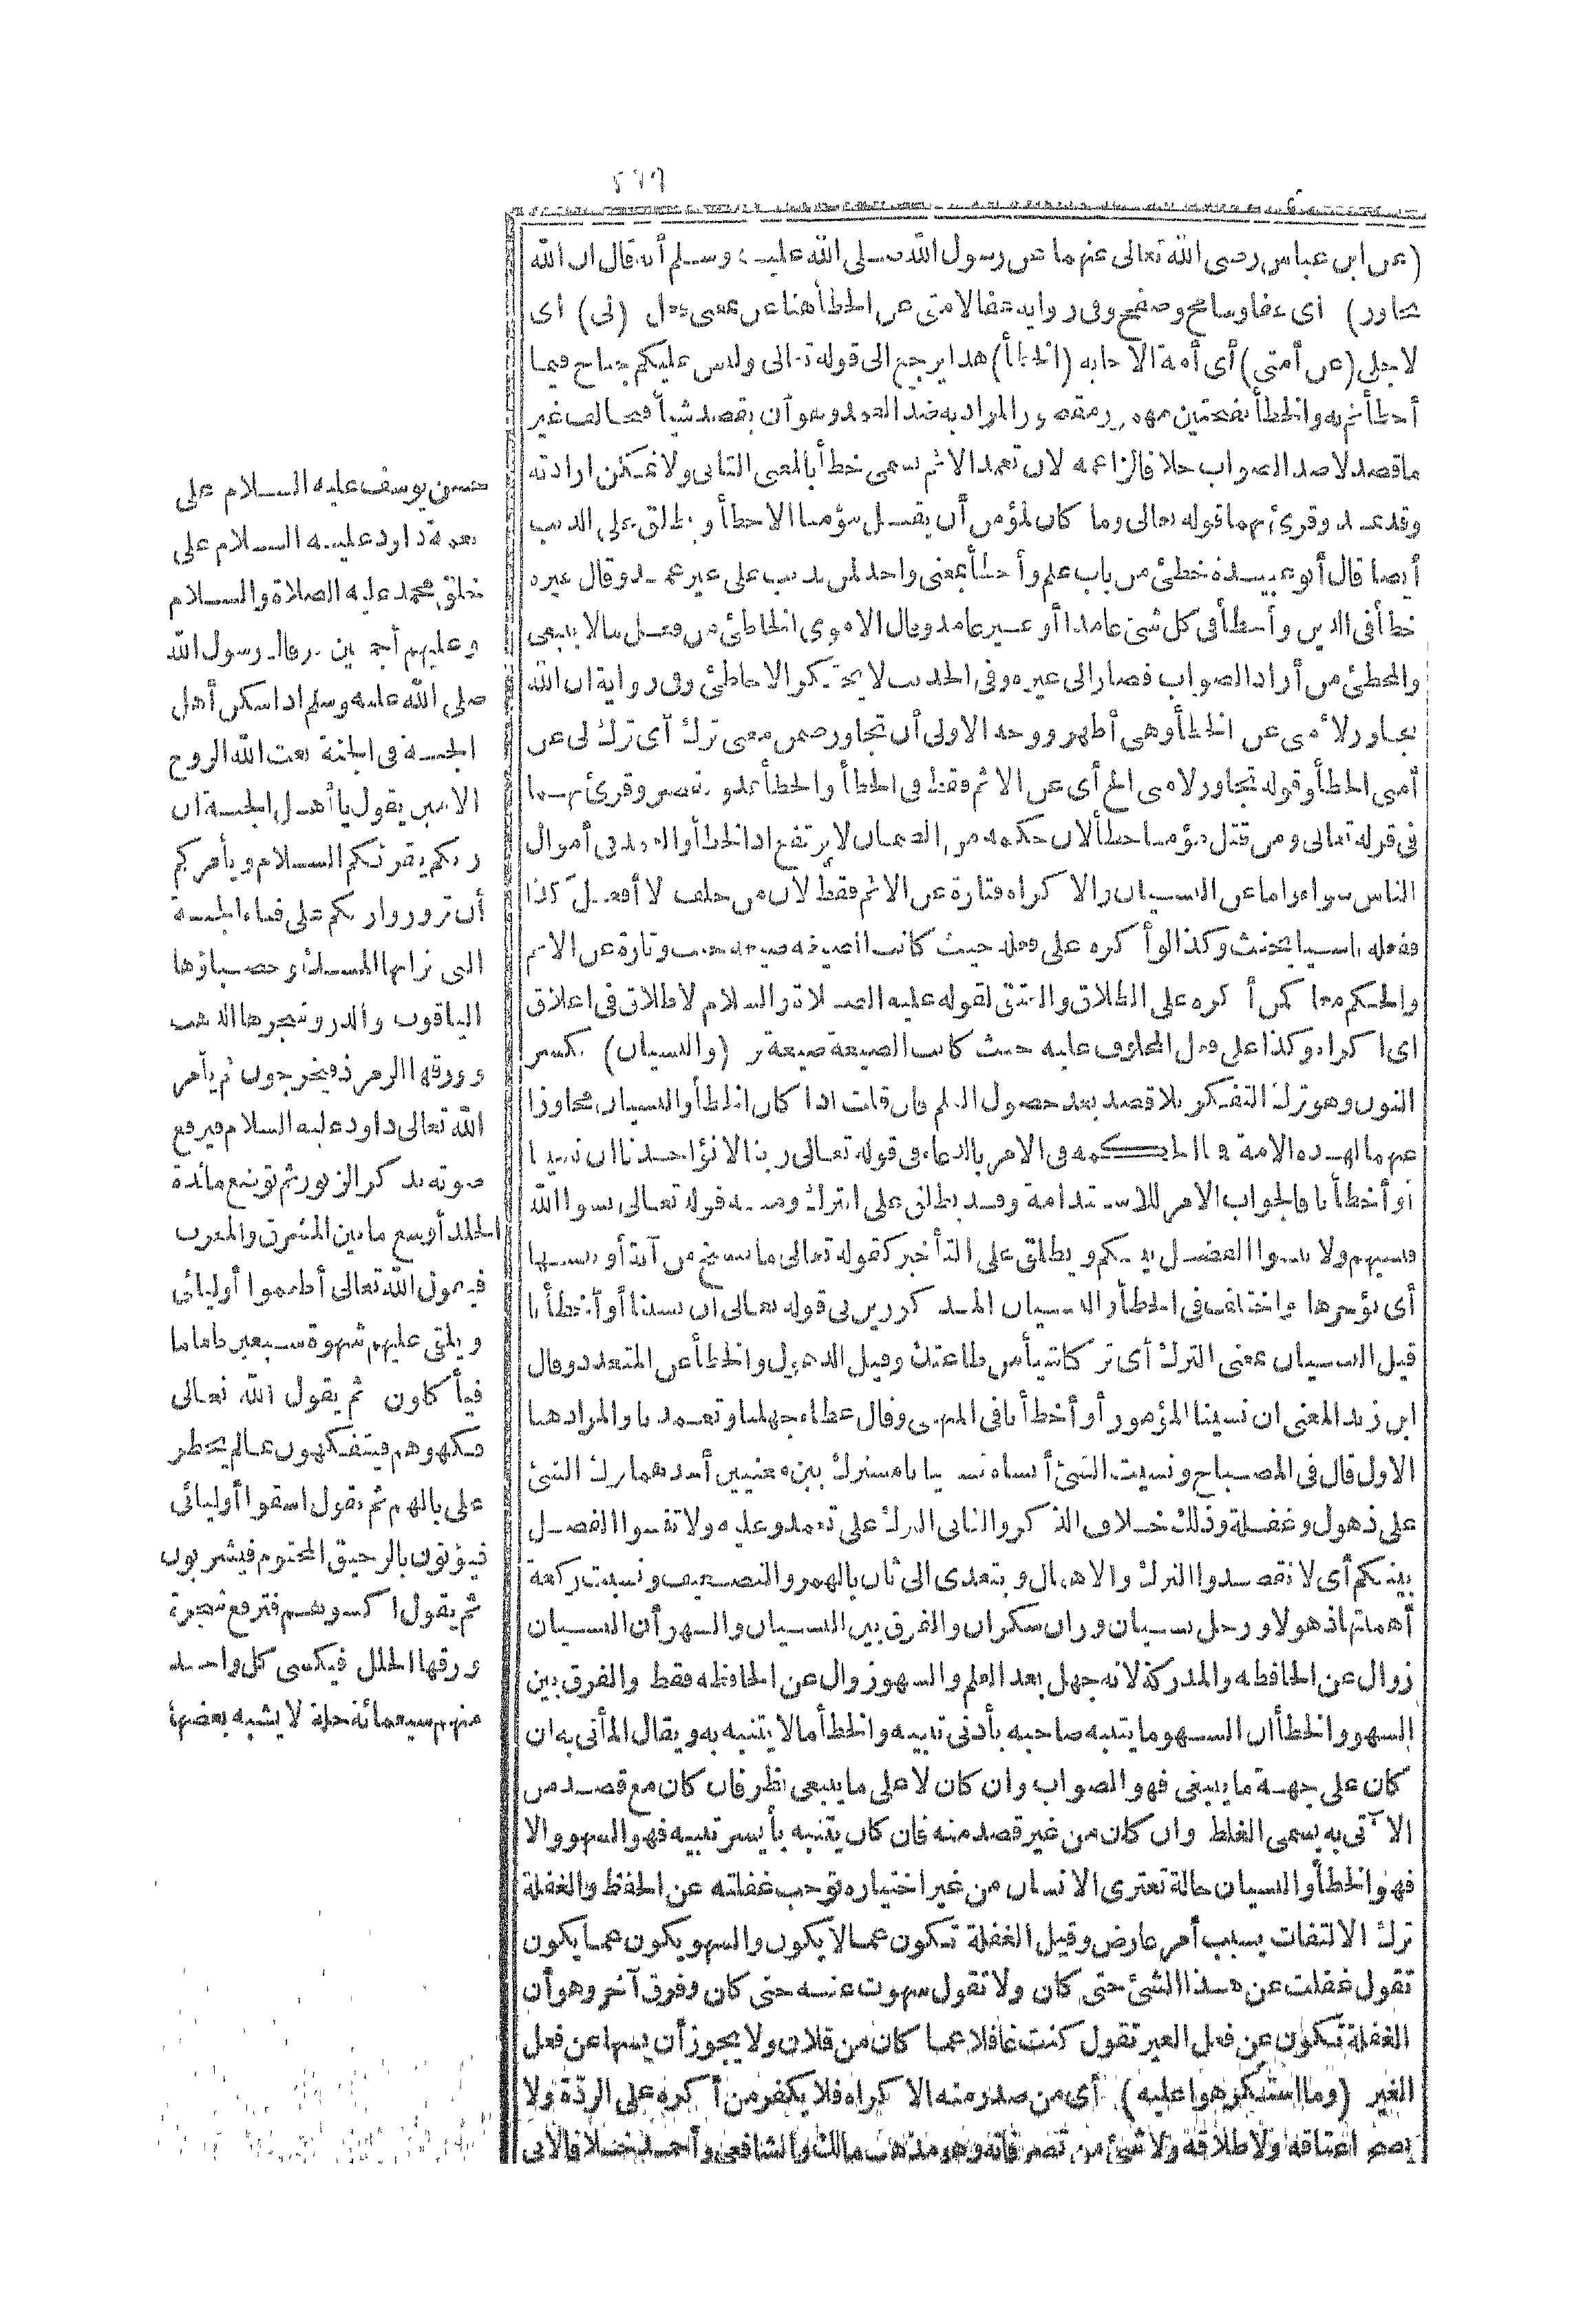 ٢٦٩
(عن ابن عباس رضى الله تعالى عنهما عن رسول الله صلى الله عليه وسلم أنه قال ان الله
تجاوز) أى عفا وسامح وصفح وفى رواية عفا لامتى عن الخطأ هنا عن بمعنى (لى) أى
لاجلى (عن أمتى) أى أمة الاجابة (الخطأ) هذا يرجع الى قوله تعالى وليس عليكم جناح فيما
أخطأتم به والخطأ بفتحتين مهموز مقصور والمراد به ضد العمد وهو أن يقصد شيأ فيخالف غير
ما قصد لا ضد الصواب خلافا لزاعمه لان تعمد الاثم يسمى خطأ بالمعنى الثانى ولا تمكن ارادته
وقد يمد وقرئ بهما قوله تعالى وما كان لمؤمن أن يقتل مؤمنا الا خطأ ويطلق على الذنب
أيضا قال أبو عبيدة خطئ من باب علم وأخطأ بمعنى واحد لمن يذنب على غير عمد وقال غيره
خطأ فى الدين وأخطأ فى كل شئ عامدا أو غير عامد وقال الاموى الخاطئ من فعل ما لا ينبغى
والمخطئ من أراد الصواب فصار الى غيره وفى الحديث لا يحتكر الا خاطئ وفى رواية ان الله
تجاوز لأمتى عن الخطأ وهى أظهر ووجه الاولى أن تجاوز ضمن معنى ترك أى ترك لى عن
أمتى الخطأ وقوله تجاوز لامتى الخ أى عن الاثم فقط فى الخطأ والخطأ يمد ويقصر وقرئ بهما
فى قوله تعالى ومن قتل مؤمنا خطأ لان حكمه من الضمان لا يرتفع اذ الخطأ والعمد فى أموال
الناس سواء واما عن النسيان والاكراه فتارة عن الاثم فقط لان من حلف لا أفعل كذا
ففعله ناسيا يحنث وكذا لو أكره على فعله حيث كانت الصيغة صيغة حنث وتارة عن الاثم
والحكم معا كمن أكره على الطلاق والعتق لقوله عليه الصلاة والسلام لا طلاق فى اغلاق
أى اكراه وكذا على فعل المحلوف عليه حيث كانت الصيغة صيغة بر (والنسيان) بكسر
النون وهو ترك التفكر بلا قصد بعد حصول العلم فان قلت اذا كان الخطأ والنسيان متجاوزا
عنهما لهذه الامة فما الحكمة فى الامر بالدعاء فى قوله تعالى ربنا لا تؤاخذنا ان نسينا
أو أخطأنا فالجواب الامر للاستدامة وقد يطلق على الترك ومنه قوله تعالى نسوا الله
فنسيهم ولا تنسوا الفضل بينكم ويطلق على التأخير كقوله تعالى ما ننسخ من آية أو ننسها
أى نؤخرها واختلف فى الخطأ والنسيان المذكورين فى قوله تعالى ان نسينا أو أخطأنا
قيل النسيان بمعنى الترك أى تركنا شيأ من طاعتك وقيل الذهول والخطأ عن المتعمد وقال
ابن زيد المعنى ان نسينا المأمور أو أخطأنا فى المنهى وقال عطاء جهلنا وتعمدنا والمراد هنا
الاول قال فى المصباح ونسيت الشئ أنساه نسيانا مشترك بين معنيين أحدهما ترك الشئ
على ذهول وغفلة وذلك خلاف الذكر والثانى الترك على تعمد وعليه ولا تنسوا الفضل
بينكم أى لا تقصدوا الترك والاهمال ويتعدى الى ثان بالهمز والتضعيف ونسيت ركعة
أهملتها ذهولا ورجل نسيان وزان سكران والفرق بين النسيان والسهو أن النسيان
زوال عن الحافظة والمدركة لانه جهل بعد العلم والسهو زوال عن الحافظة فقط والفرق بين
السهو والخطأ أن السهو ما ينتبه صاحبه بأدنى تنبيه والخطأ ما لا يتنبه به ويقال المأتى به ان
كان على جهة ما ينبغى فهو الصواب وان كان لا على ما ينبغى نظر فان كان مع قصد من
الآتى به يسمى الغلط وان كان من غير قصد منه فان كان يتنبه بأيسر تنبيه فهو السهو والا
فهو الخطأ والنسيان حالة تعترى الانسان من غير اختياره توجب غفلته عن الحفظ والغفلة
ترك الالتفات بسبب أمر عارض وقيل الغفلة تكون عما لا يكون والسهو يكون عما يكون
تقول غفلت عن هذا الشئ حتى كان ولا تقول سهوت عنه حتى كان وفرق آخر وهو أن
الغفلة تكون عن فعل الغير تقول كنت غافلا عما كان من فلان ولا يجوز أن يسها عن فعل
الغير (وما استكرهوا عليه) أى من صدر منه الاكراه فلا يكفر من أكره على الردة ولا
يصح اعتاقه ولا طلاقه ولا شئ من تصرفاته وهو مذهب مالك والشافعى وأحمد خلافا لابى
حسن يوسف عليه السلام على
نغمة داود عليه السلام على
خلق محمد عليه الصلاة والسلام
وعليهم أجمعين وقال رسول الله
صلى الله عليه وسلم اذا سكن أهل
الجنة فى الجنة بعث الله الروح
الامين يقول يا أهل الجنة ان
ربكم يقرئكم السلام ويأمركم
أن تزوروا ربكم على فناء الجنة
التى ترابها المسك وحصباؤها
الياقوت والدر وشجرها الذهب
وورقها الزمرذ فيخرجون ثم يأمر
الله تعالى داود عليه السلام فيرفع
صوته بذكر الزبور ثم توضع مائدة
الخلد أوسع ما بين المشرق والمغرب
فيقول الله تعالى أطعموا أوليائى
ويلقى عليهم شهوة سبعين طعاما
فيأكلون ثم يقول الله تعالى
فكهوهم فيتفكهون بما لم يخطر
على بالهم ثم يقول اسقوا أوليائى
فيؤتون بالرحيق المختوم فيشربون
ثم يقول اكسوهم فترفع شجرة
ورقها الحلل فيكسى كل واحد
منهم سبعمائة حلة لا يشبه بعضها